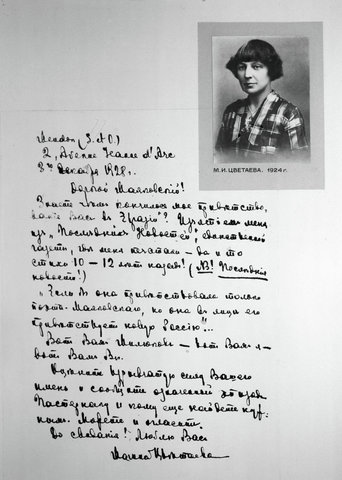 М.И. ЦВЕТАЕВА. 1924 г.
Meudon (S. et O.)
2, Avenue Jeanne d'Arc
3го декабря 1928 г.
Дорогой Маяковский!
Знаете чем кончилось мое приветствие
Вас в Евразии? Изъятием меня
из „Последних Новостей", единственной
газеты, где меня печатали — да и то
стихи 10–12 лет назад! (NB! Последние
новости!)
„Если б она приветствовала только
поэта Маяковского, но она в лице его
приветствует новую Россию"...
Вот Вам Милюков — вот Вам я —
вот Вам Вы.
Оцените взрывчатую силу Вашего
имени и сообщите означенный эпизод
Пастернаку и кому еще найдете нуж-
ным. Можете и огласить.
До свидания! Люблю Вас
Марина Цветаева